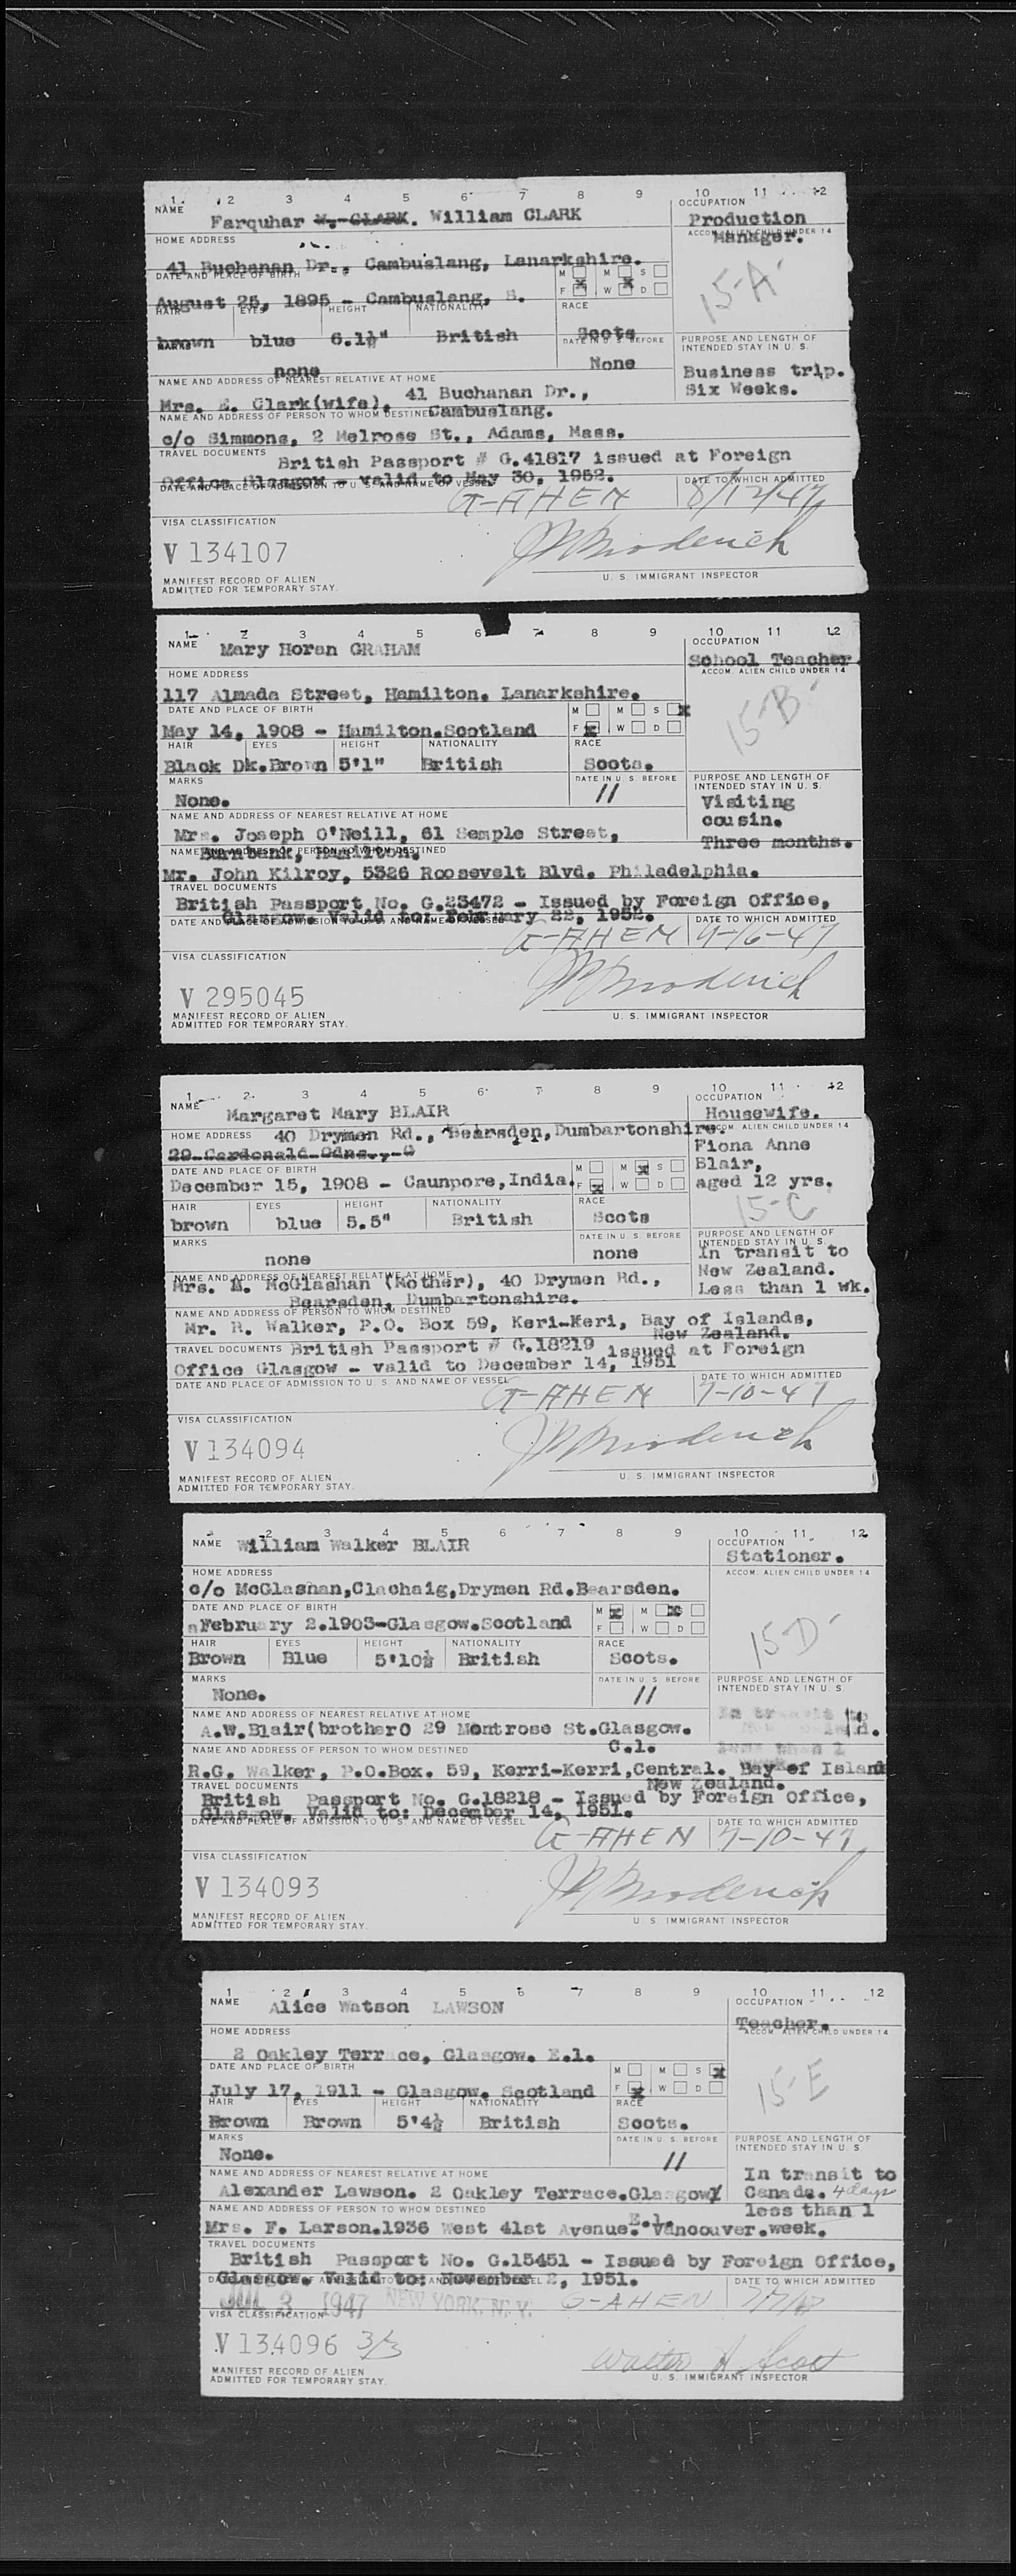 1 2 3 4 5 6 7 8 9 10 11 12
NAME OCCUPATION
Farquhar W. CLARK. William CLARK Production
HOME ADDRESS ACCOM. ALIEN CHILD UNDER 14
Manager.
41 Buchanan Dr., Cambuslang, Lanarkshire.
DATE AND PLACE OF BIRTH M M S
F W D
15-A
August 25, 1895 - Cambuslang, S.
HAIR EYES HEIGHT NATIONALITY RACE
brown blue 6.1½" British Scots
MARKS DATE IN U. S. BEFORE PURPOSE AND LENGTH OF
INTENDED STAY IN U. S.
none None
Business trip.
NAME AND ADDRESS OF NEAREST RELATIVE AT HOME
Six Weeks.
Mrs. E. Clark(wife), 41 Buchanan Dr.,
Cambuslang.
NAME AND ADDRESS OF PERSON TO WHOM DESTINED
c/o Simmons, 2 Melrose St., Adams, Mass.
TRAVEL DOCUMENTS
British Passport # G.41817 issued at Foreign
Office Glasgow - valid to May 30, 1952.
DATE AND PLACE OF ADMISSION TO U. S. AND NAME OF VESSEL DATE TO WHICH ADMITTED
G-AHEN 8/12/47
VISA CLASSIFICATION
V 134107
U. S. IMMIGRANT INSPECTOR
MANIFEST RECORD OF ALIEN
ADMITTED FOR TEMPORARY STAY.
1 2 3 4 5 6 7 8 9 10 11 12
NAME OCCUPATION
Mary Horan GRAHAM School Teacher
HOME ADDRESS ACCOM. ALIEN CHILD UNDER 14
117 Almada Street, Hamilton. Lanarkshire.
15-B
DATE AND PLACE OF BIRTH M M S
F W D
May 14, 1908 - Hamilton.Scotland
HAIR EYES HEIGHT NATIONALITY RACE
Black Dk.Brown 5'1" British Scots.
MARKS DATE IN U. S. BEFORE PURPOSE AND LENGTH OF
INTENDED STAY IN U. S.
None. //
Visiting
cousin.
NAME AND ADDRESS OF NEAREST RELATIVE AT HOME
Mrs. Joseph O'Neill, 61 Semple Street,
Three months.
Burnbank, Hamilton.
NAME AND ADDRESS OF PERSON TO WHOM DESTINED
Mr. John Kilroy, 5326 Roosevelt Blvd. Philadelphia.
TRAVEL DOCUMENTS
British Passport No. G.23472 - Issued by Foreign Office,
Glasgow. Valid to: February 22, 1952.
DATE AND PLACE OF ADMISSION TO U. S. AND NAME OF VESSEL DATE TO WHICH ADMITTED
G-AHEN
VISA CLASSIFICATION
V 295045
MANIFEST RECORD OF ALIEN U. S. IMMIGRANT INSPECTOR
ADMITTED FOR TEMPORARY STAY.
1 2 3 4 5 6 7 8 9 10 11 12
NAME OCCUPATION
Margaret Mary BLAIR Housewife.
HOME ADDRESS 40 Drymen Rd., Bearsden, Dumbartonshire. ACCOM. ALIEN CHILD UNDER 14
29 Cardonald Gdns.,
Fiona Anne
Blair,
aged 12 yrs.
DATE AND PLACE OF BIRTH M M S
F W D
December 15, 1908 - Caunpore, India.
15-C
HAIR EYES HEIGHT NATIONALITY RACE
brown blue 5.5" British Scots
MARKS DATE IN U. S. BEFORE PURPOSE AND LENGTH OF
INTENDED STAY IN U. S.
none none
In transit to
New Zealand.
Less than 1 wk.
NAME AND ADDRESS OF NEAREST RELATIVE AT HOME
Mrs. M. McGlashan (Mother), 40 Drymen Rd.,
Bearsden, Dumbartonshire.
NAME AND ADDRESS OF PERSON TO WHOM DESTINED
Mr. R. Walker, P.O. Box 59, Keri-Keri, Bay of Islands,
New Zealand.
TRAVEL DOCUMENTS British Passport # G.18219 issued at Foreign
Office Glasgow - valid to December 14, 1951
DATE AND PLACE OF ADMISSION TO U. S. AND NAME OF VESSEL DATE TO WHICH ADMITTED
G-AHEN 7-10-47
VISA CLASSIFICATION
V 134094
MANIFEST RECORD OF ALIEN U. S. IMMIGRANT INSPECTOR
ADMITTED FOR TEMPORARY STAY.
1 2 3 4 5 6 7 8 9 10 11 12
NAME William Walker BLAIR OCCUPATION
Stationer.
HOME ADDRESS ACCOM. ALIEN CHILD UNDER 14
c/o McGlashan,Clachaig,Drymen Rd.Bearsden.
DATE AND PLACE OF BIRTH M M S
F W D
February 2.1903-Glasgow.Scotland
15-D
HAIR EYES HEIGHT NATIONALITY RACE
Brown Blue 5'10½ British Scots.
MARKS DATE IN U. S. BEFORE PURPOSE AND LENGTH OF
INTENDED STAY IN U. S.
None. //
In transit to
NAME AND ADDRESS OF NEAREST RELATIVE AT HOME
A.W.Blair(brother0 29 Montrose St.Glasgow.
C.1.
less than 1
week.
NAME AND ADDRESS OF PERSON TO WHOM DESTINED
R.G. Walker, P.O.Box. 59, Kerri-Kerri,Central. Bay of Island
New Zealand.
TRAVEL DOCUMENTS
British Passport No. G.18218 - Issued by Foreign Office,
Glasgow. Valid to: December 14, 1951.
DATE AND PLACE OF ADMISSION TO U. S. AND NAME OF VESSEL DATE TO WHICH ADMITTED
G-AHEN 7-10-47
VISA CLASSIFICATION
V 134093
MANIFEST RECORD OF ALIEN U. S. IMMIGRANT INSPECTOR
ADMITTED FOR TEMPORARY STAY.
1 2 3 4 5 6 7 8 9 10 11 12
NAME OCCUPATION
Alice Watson LAWSON Teacher.
HOME ADDRESS ACCOM. ALIEN CHILD UNDER 14
2 Oakley Terrace, Glasgow. E.1.
DATE AND PLACE OF BIRTH M M S
F W D
15-E
July 17, 1911 - Glasgow. Scotland
HAIR EYES HEIGHT NATIONALITY RACE
Brown Brown 5'4½ British Scots.
MARKS DATE IN U. S. BEFORE PURPOSE AND LENGTH OF
INTENDED STAY IN U. S.
None. //
In transit to
NAME AND ADDRESS OF NEAREST RELATIVE AT HOME
Canada. 4 days
Alexander Lawson. 2 Oakley Terrace.Glasgow
E.1.
less than 1
week.
NAME AND ADDRESS OF PERSON TO WHOM DESTINED
Mrs. F. Larson.1936 West 41st Avenue. Vancouver.
TRAVEL DOCUMENTS
British Passport No. G.15451 - Issued by Foreign Office,
Glasgow. Valid to: November 2, 1951.
DATE AND PLACE OF ADMISSION TO U. S. AND NAME OF VESSEL DATE TO WHICH ADMITTED
JUL 3 1947 NEW YORK, N. Y. G-AHEN
VISA CLASSIFICATION
V 134096 3/3
Walter A Scott
MANIFEST RECORD OF ALIEN U. S. IMMIGRANT INSPECTOR
ADMITTED FOR TEMPORARY STAY.